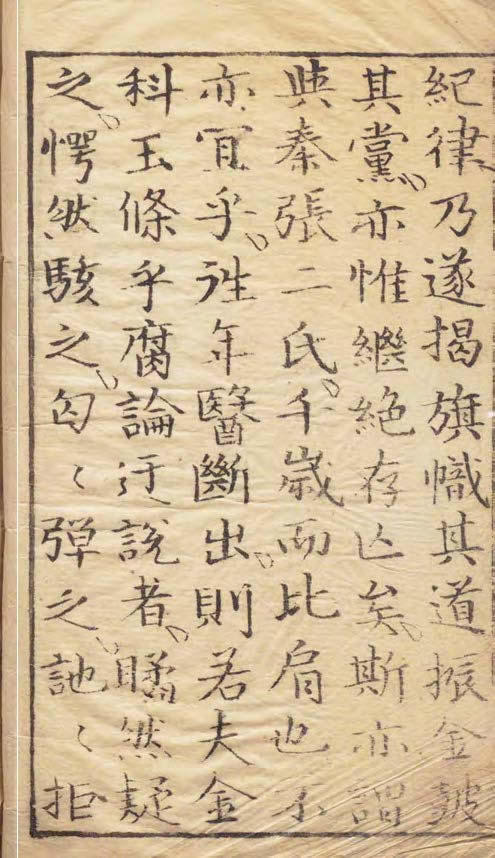 紀律乃遂揭旗幟其道振金皷
其黨、亦惟繼絕存亾矣、斯亦謂
與秦張二氏、千歲而比肩也不
亦冝乎、往年醫斷出、則若夫金
科玉條乎腐論迂說者、瞲然疑
之、愕然駭之、匈〻弾之、訑〻拒